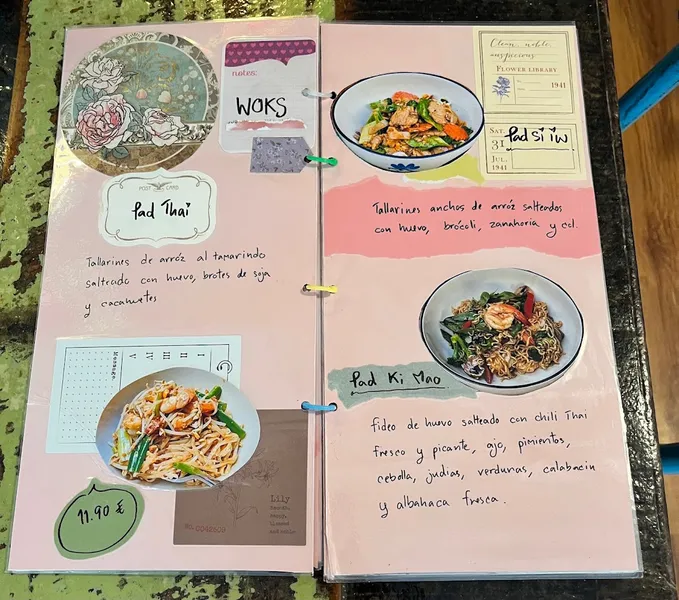 notes:
WOKS
POST CARD
Pad Thai
Tallarines de arróz al tamarindo
salteado con huevo, brotes de soja
y cacahuetes
Messages.
I II III IV V
11.90 €
Lily
Clean, noble,
auspicious
FLOWER LIBRARY
1941
SAT.
31
JUL.
1941
Pad si iw
Tallarines anchos de arróz salteados
con huevo, brócoli, zanahoria y col.
Pad Ki Mao
fideo de huevo salteado con chili Thai
fresco y picante, ajo, pimientos,
cebolla, judias, verduras, calabacin
y albahaca fresca.